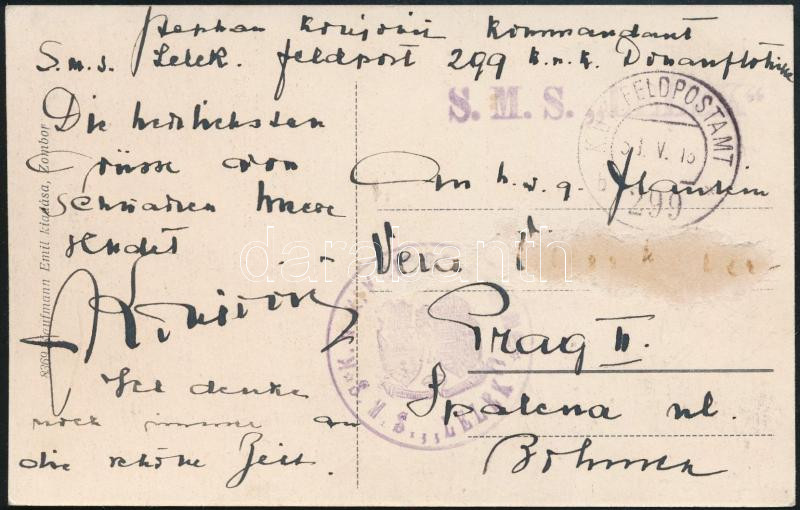 Stephan Konjović Kommandant
S.m.s. Lelek. Feldpost 299 k.u.k. Donauflottille
S. M. S. „LELEK“
K.u.K. FELDPOSTAMT
V. 18
b
299
Die herzlichsten
Grüsse vom
Schwarzen Meere
sendet
Konjović
Ich denke
noch immer an
die schöne Zeit.
An h.w.g. Fräulein
Vera
Prag II.
Spalena ul.
Böhmen
S.M.S. „LELEK“
8369 Kaufmann Emil kiadása, Zombor
darabanth